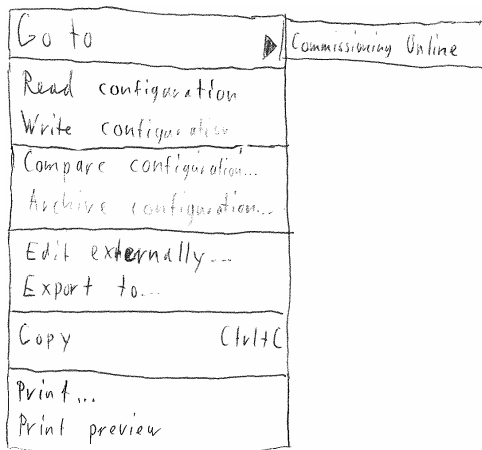 Go to
Commissioning Online
Read configuration
Write configuration
Compare configuration...
Archive configuration...
Edit externally...
Export to...
Copy Ctrl+C
Print...
Print preview